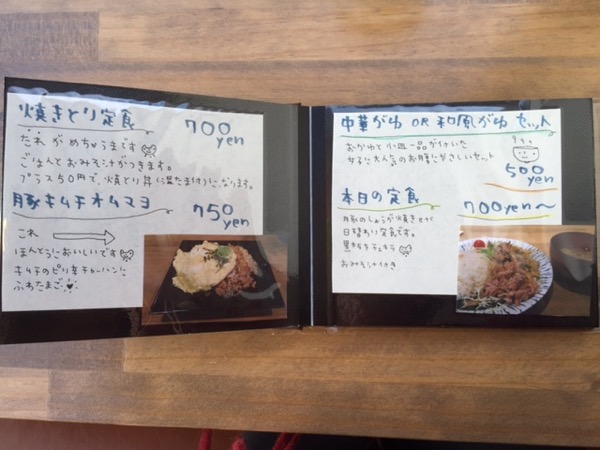 焼きとり定食 700yen
たれがめちゃうまです
ごはんとおみそ汁がつきます。
プラス50円で、焼とり丼(温たま付)になります。
豚キムチオムマヨ 750yen
これ
ほんとうにおいしいです
キムチのピリ辛チャーハンに
ふわたまご
中華がゆ OR 和風がゆ セット
おかゆと小皿一品が付いた
女子に大人気のお腹にやさしいセット
500yen
本日の定食 700yen〜
豚のしょうが焼きなど
日替わり定食です。
おみそ汁付き